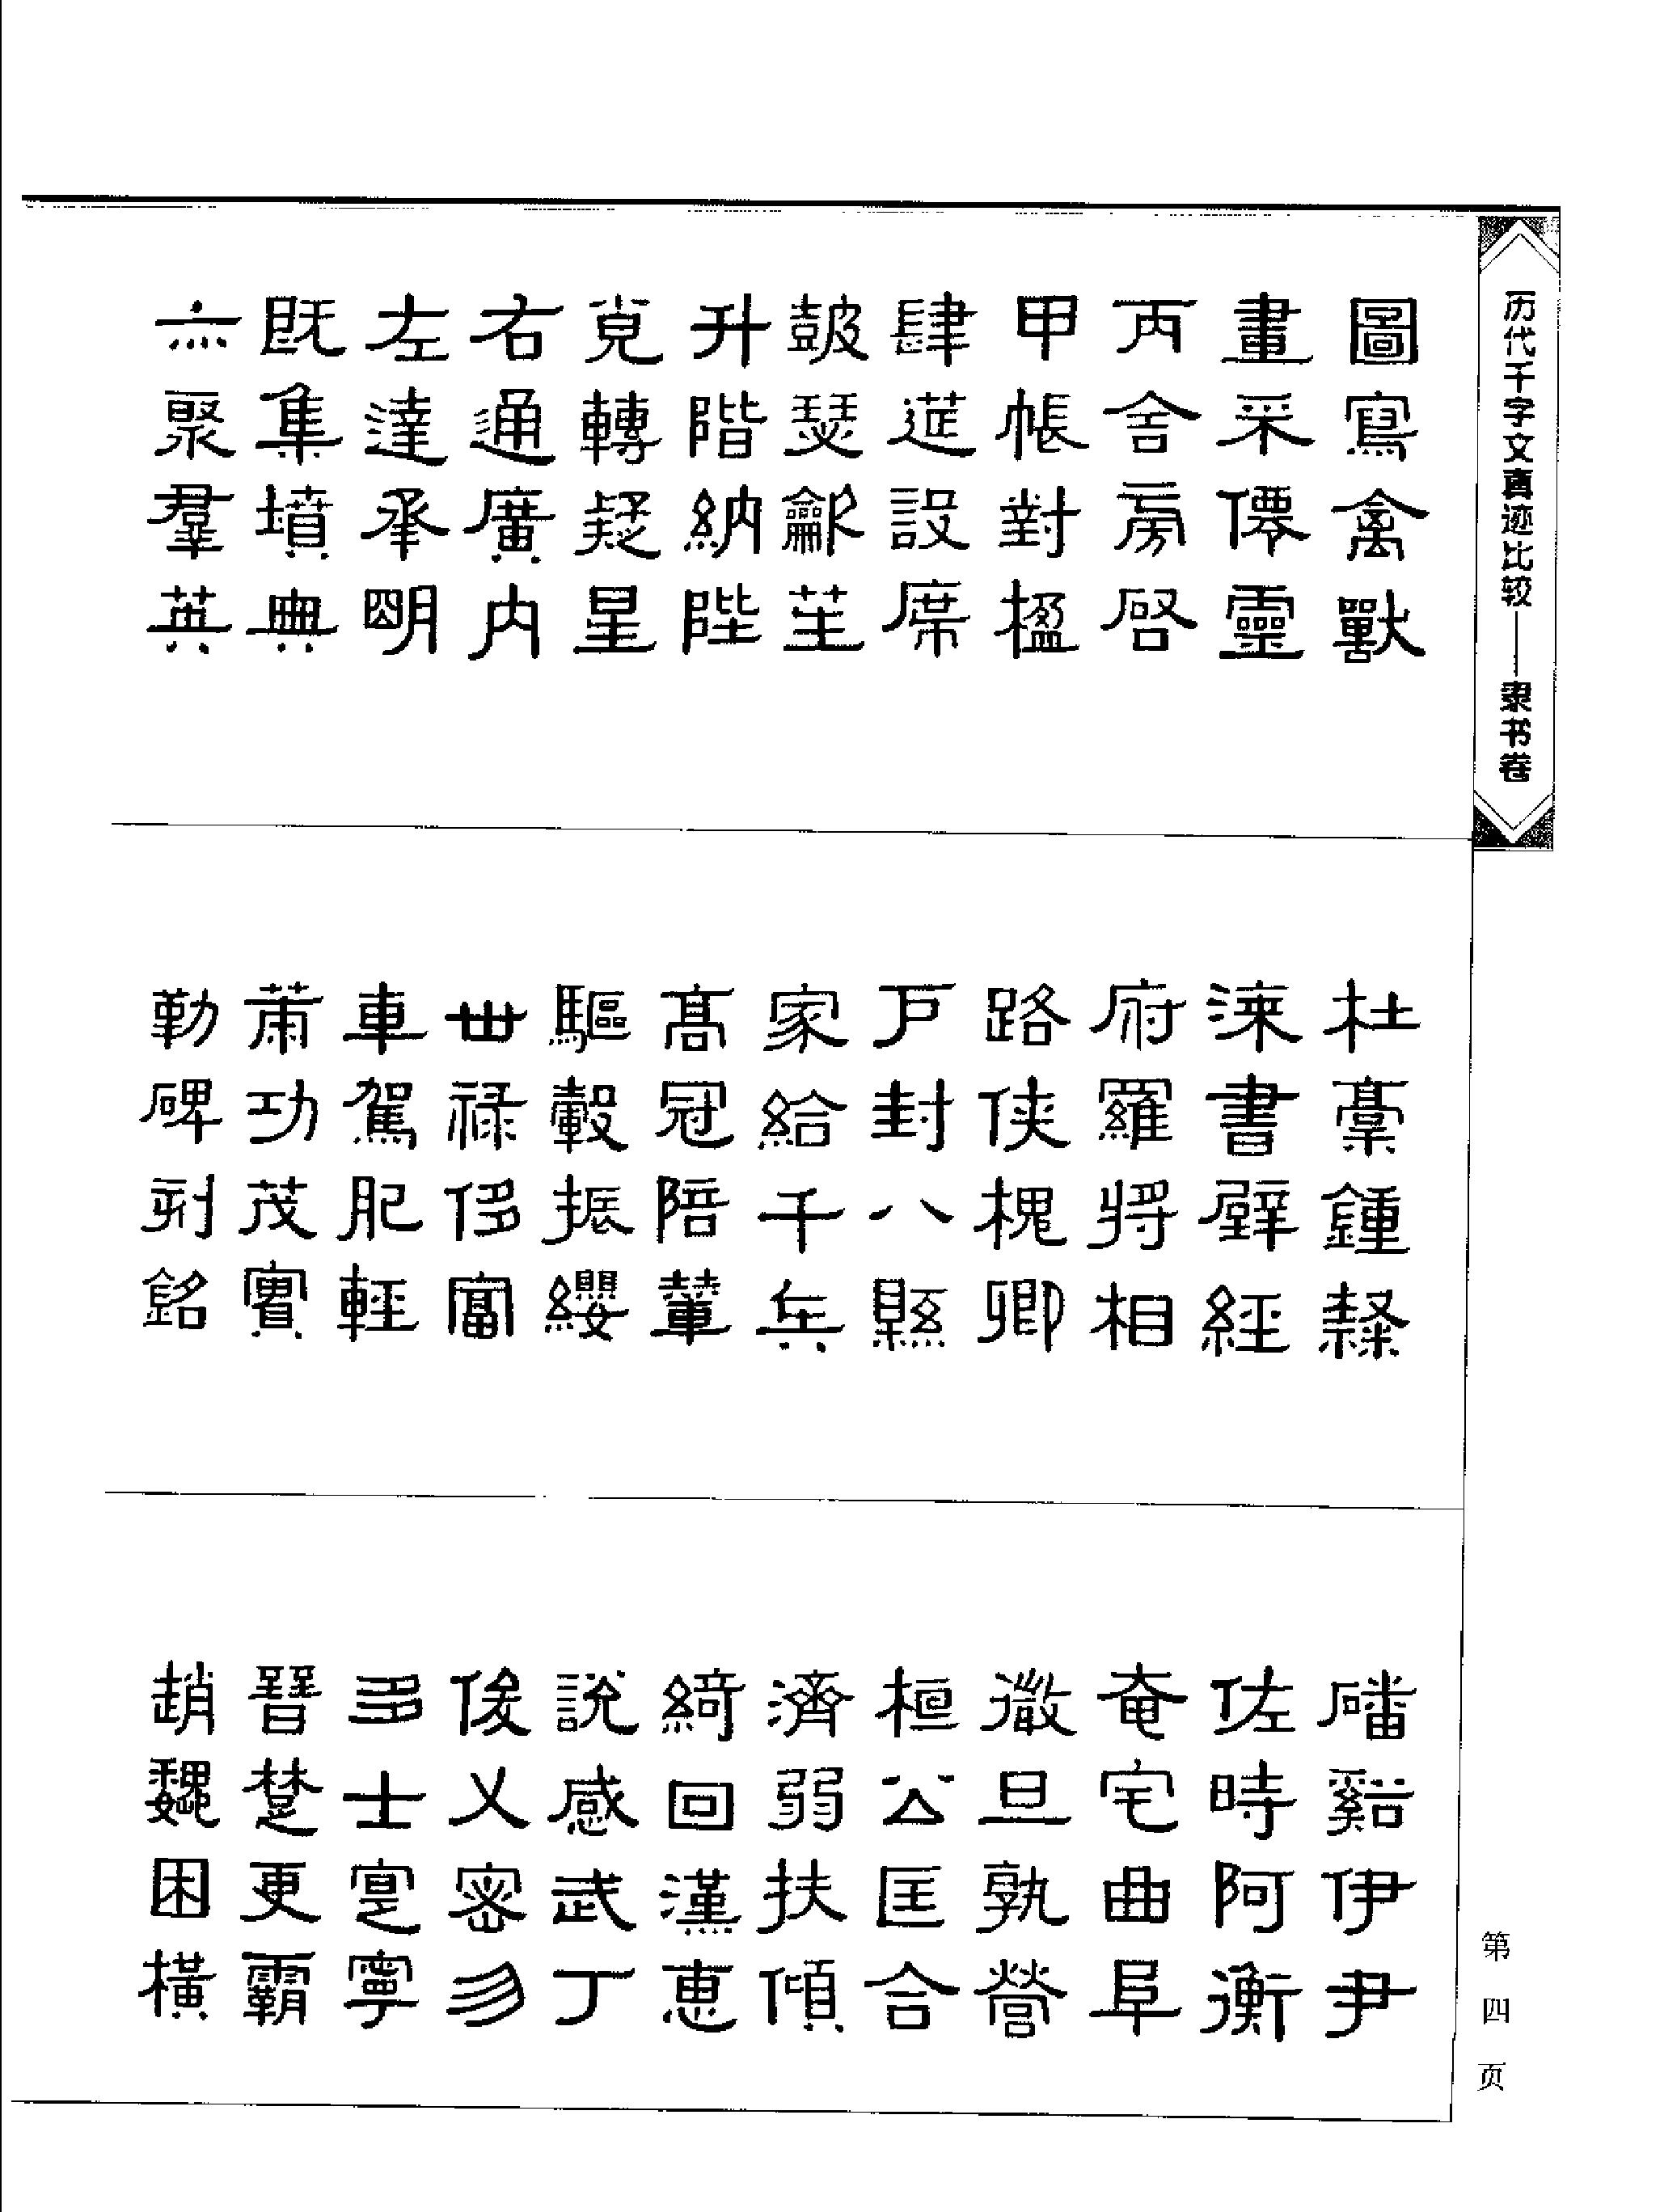 历代千字文真迹比较——隶书卷
圖寫禽獸
畫采僊靈
丙舍房啓
甲帳對楹
肆筵設席
鼓瑟龡笙
升階納陛
弁轉疑星
右通廣內
左達承明
既集墳典
亦聚羣英
杜稾鍾隸
漆書壁經
府羅將相
路俠槐卿
戶封八縣
家給千兵
高冠陪輦
驅轂振纓
世祿侈富
車駕肥輕
策功茂實
勒碑刻銘
磻谿伊尹
佐時阿衡
奄宅曲阜
微旦孰營
桓公匡合
濟弱扶傾
綺回漢惠
說感武丁
俊乂密勿
多士寔寧
晉楚更霸
趙魏困橫
第四页